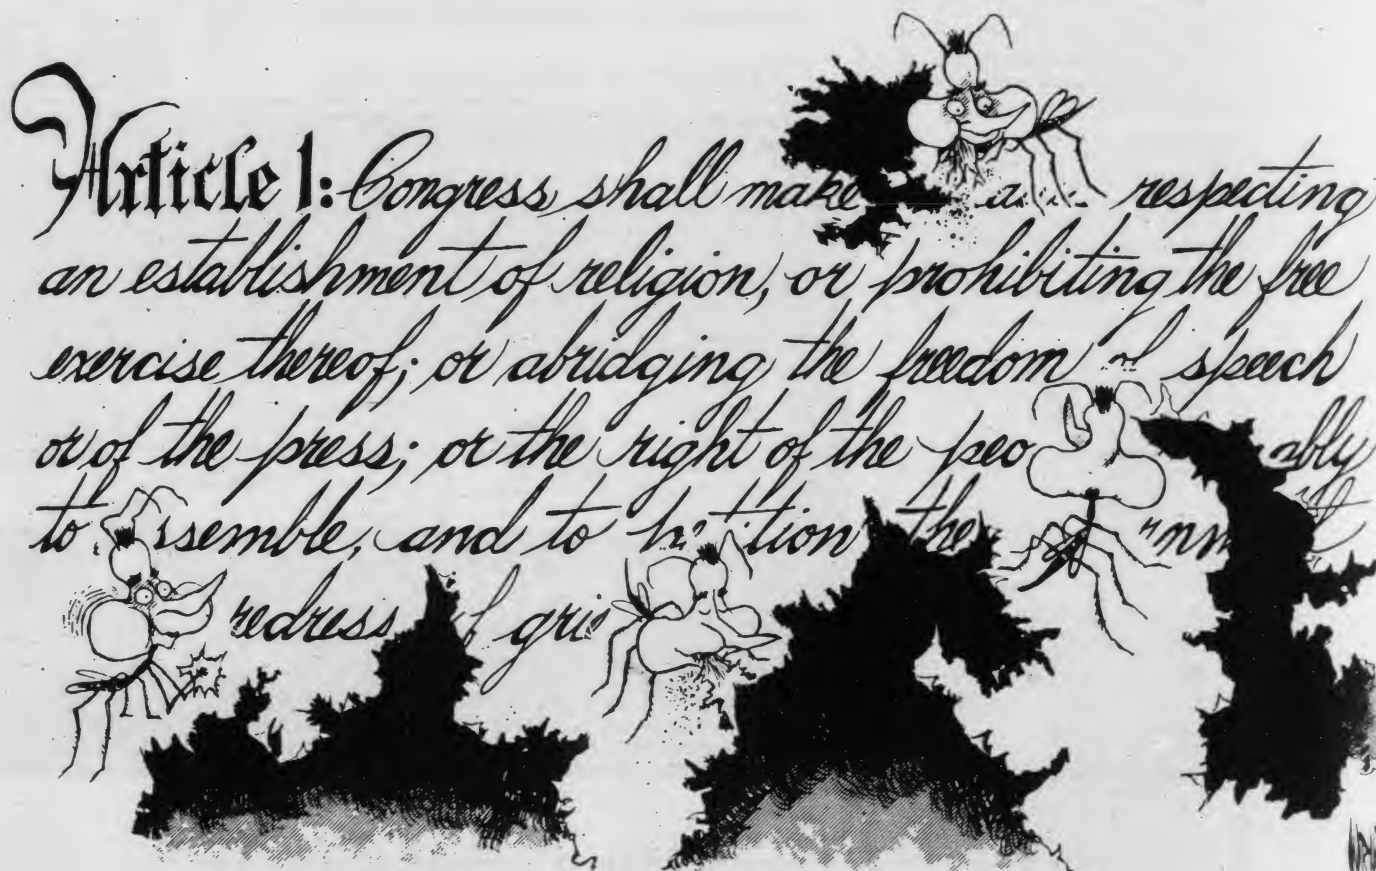 Article 1: Congress shall make respecting
an establishment of religion, or prohibiting the free
exercise thereof; or abridging the freedom of speech
or of the press; or the right of the peo ably
to ssemble, and to tition the
redress of gri